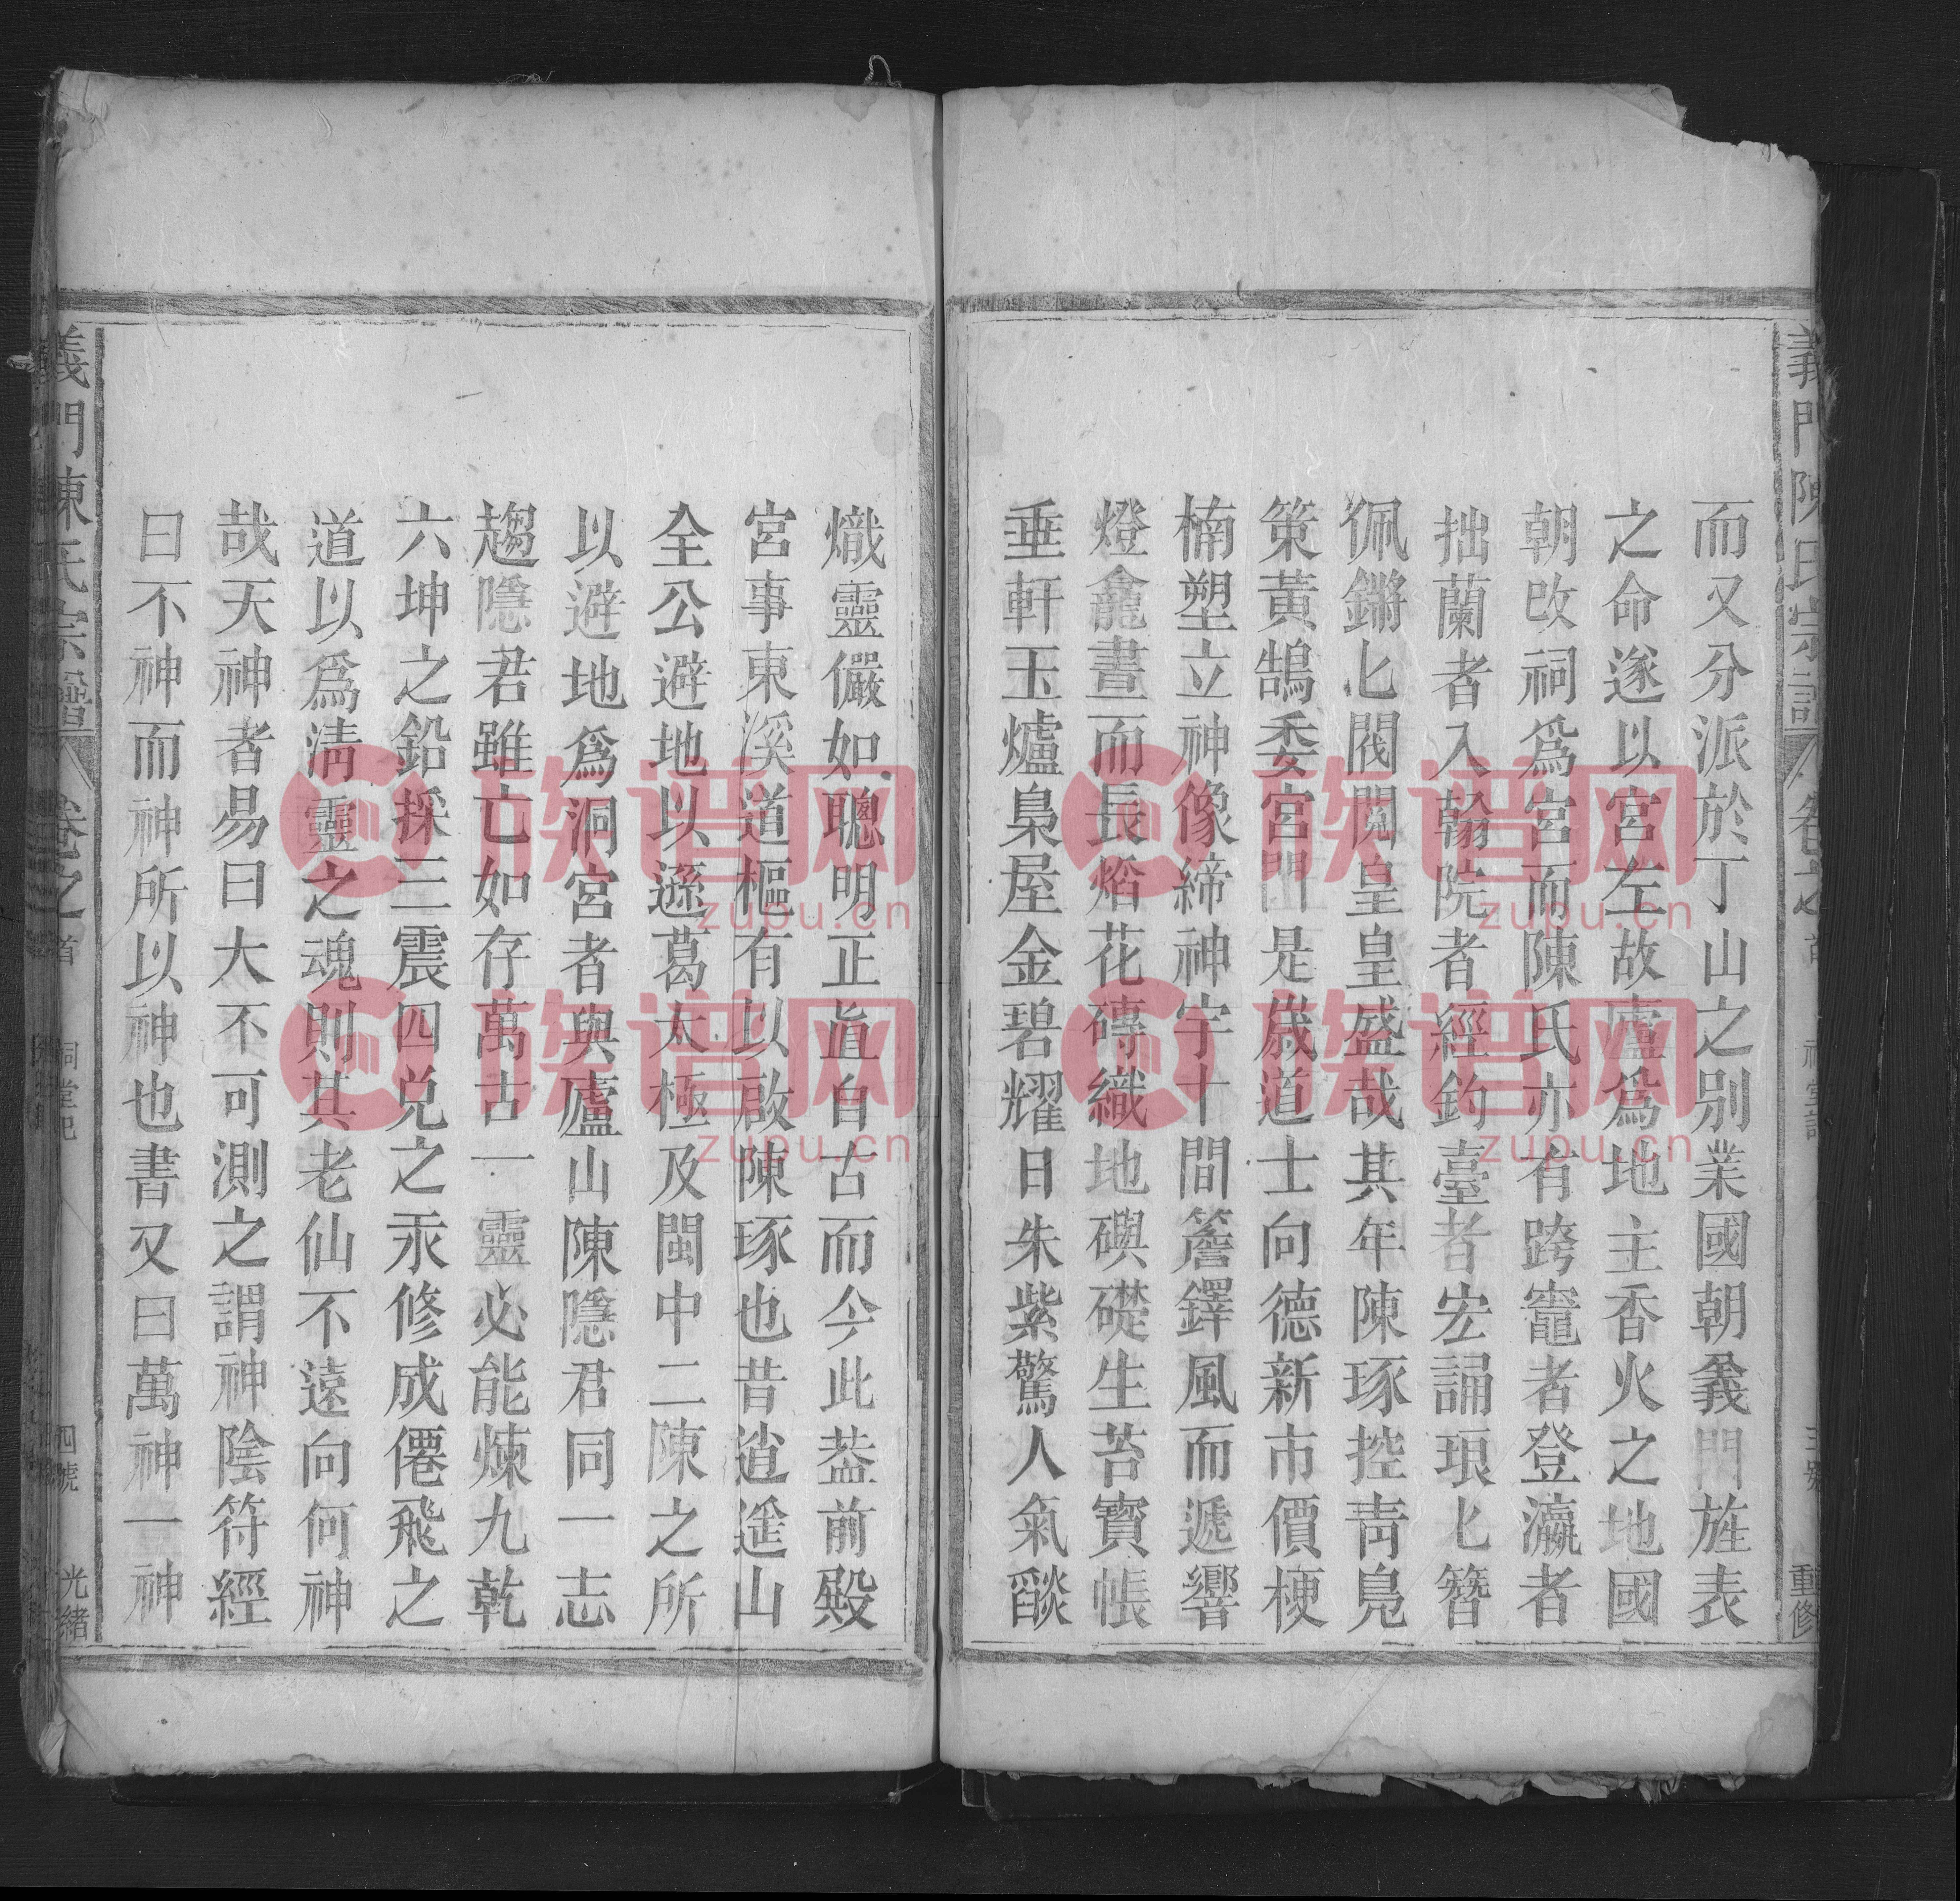 義門陳氏宗譜 卷之首 祠堂記 三號 重修
而又分派於丁山之別業國朝義門旌表
之命遂以宮左故廬爲地主香火之地國
朝改祠爲宮而陳氏亦有跨竈者登瀛者
拙蘭者入翰院者經鈞臺者宏誦琅匕簪
佩鏘匕閥閱皇皇盛哉其年陳琢控靑鳧
策黃鵠委宮門是歲道士向德新市價梗
楠塑立神像締神宇十間簷鐸風而遞響
燈龕晝而長焰花磚織地礖礎生苔寶帳
垂軒玉爐梟屋金碧耀日朱紫驚人氣燄
熾靈儼如聰明正直自古而今此盖前殿
宮事東溪道樞有以啟陳琢也昔逍遙山
全公避地以遜葛太極及閩中二陳之所
以避地爲洞宮者與廬山陳隱君同一志
趨隱君雖亡如存萬古一靈必能煉九乾
六坤之鉛採三震四兌之汞修成僊飛之
道以爲淸靈之魂則其老仙不遠向何神
哉天神者易曰大不可測之謂神陰符經
曰不神而神所以神也書又曰萬神一神
義門陳氏宗譜 卷之首 祠堂記 四號 光緒
族谱网
zupu.cn
族谱网
zupu.cn
族谱网
zupu.cn
族谱网
zupu.cn